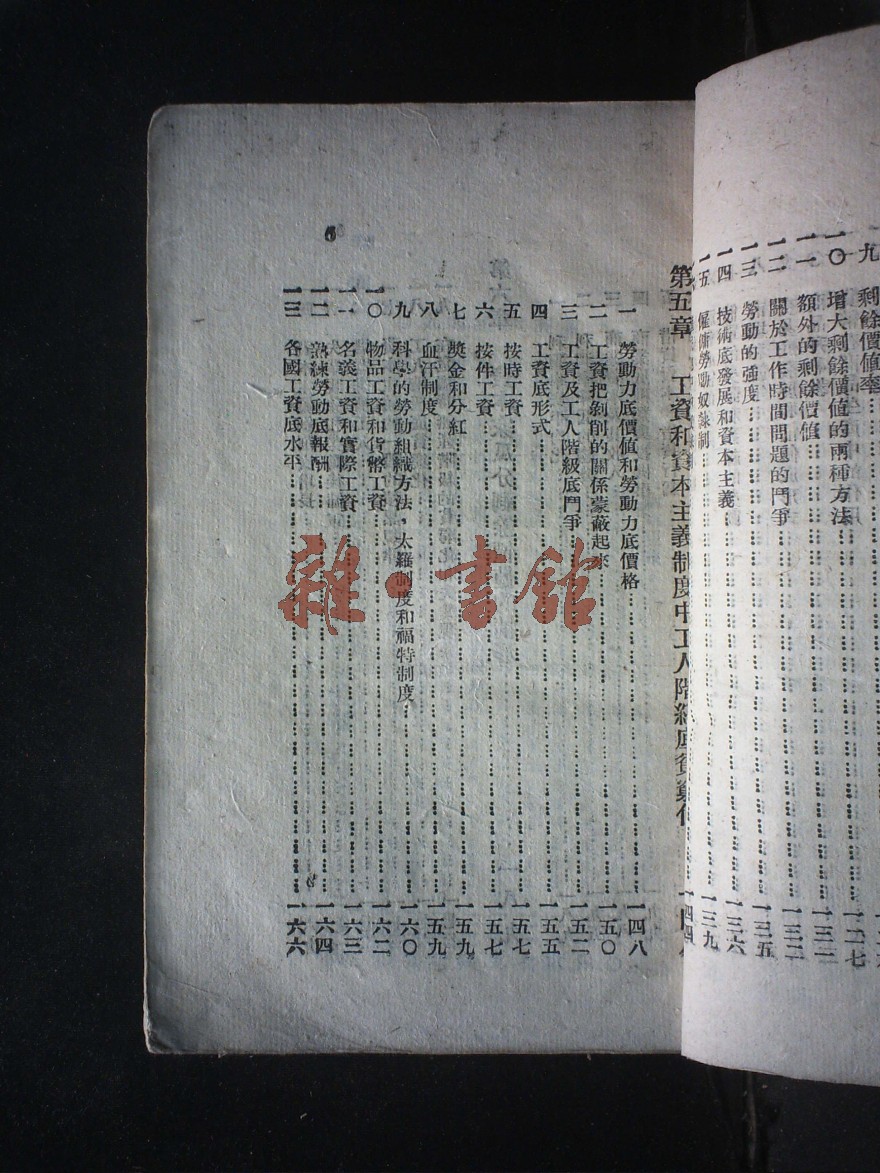 九 剩餘價值率
一〇 增大剩餘價值的兩種方法 一二七
一一 額外的剩餘價值 一三二
一二 關於工作時間問題的鬥爭 一三三
一三 勞動的強度 一三五
一四 技術底發展和資本主義 一三六
一五 僱傭勞動奴隸制 一三九
第五章 工資和資本主義制度中工人階級底貧窮化
一 勞動力底價值和勞動力底價格 一四八
二 工資把剝削的關係蒙蔽起來 一五〇
三 工資及工人階級底鬥爭 一五二
四 工資底形式 一五五
五 按時工資 一五七
六 按件工資 一五七
七 獎金和分紅 一五九
八 血汗制度 一五九
九 科學的勞動組織方法，太羅制度和福特制度 一六〇
一〇 物品工資和貨幣工資 一六二
一一 名義工資和實際工資 一六三
一二 熟練勞動底報酬 一六四
一三 各國工資底水平 一六六
6
雜·書館